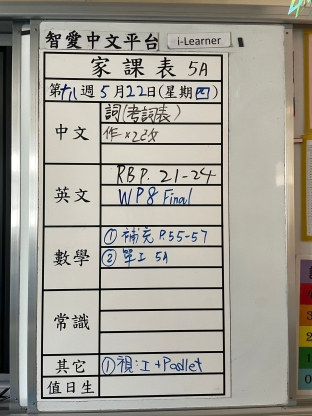 智愛中文平台 i-Learner
家課表 5A
第十八週5月22日(星期四)
中文
詞(考詞表)
作×2改
英文
RB P. 21-24
WP8 Final
數學
① 補充 P.55-57
② 單工 5A
常識
其它
① 視:工+Padlet
值日生